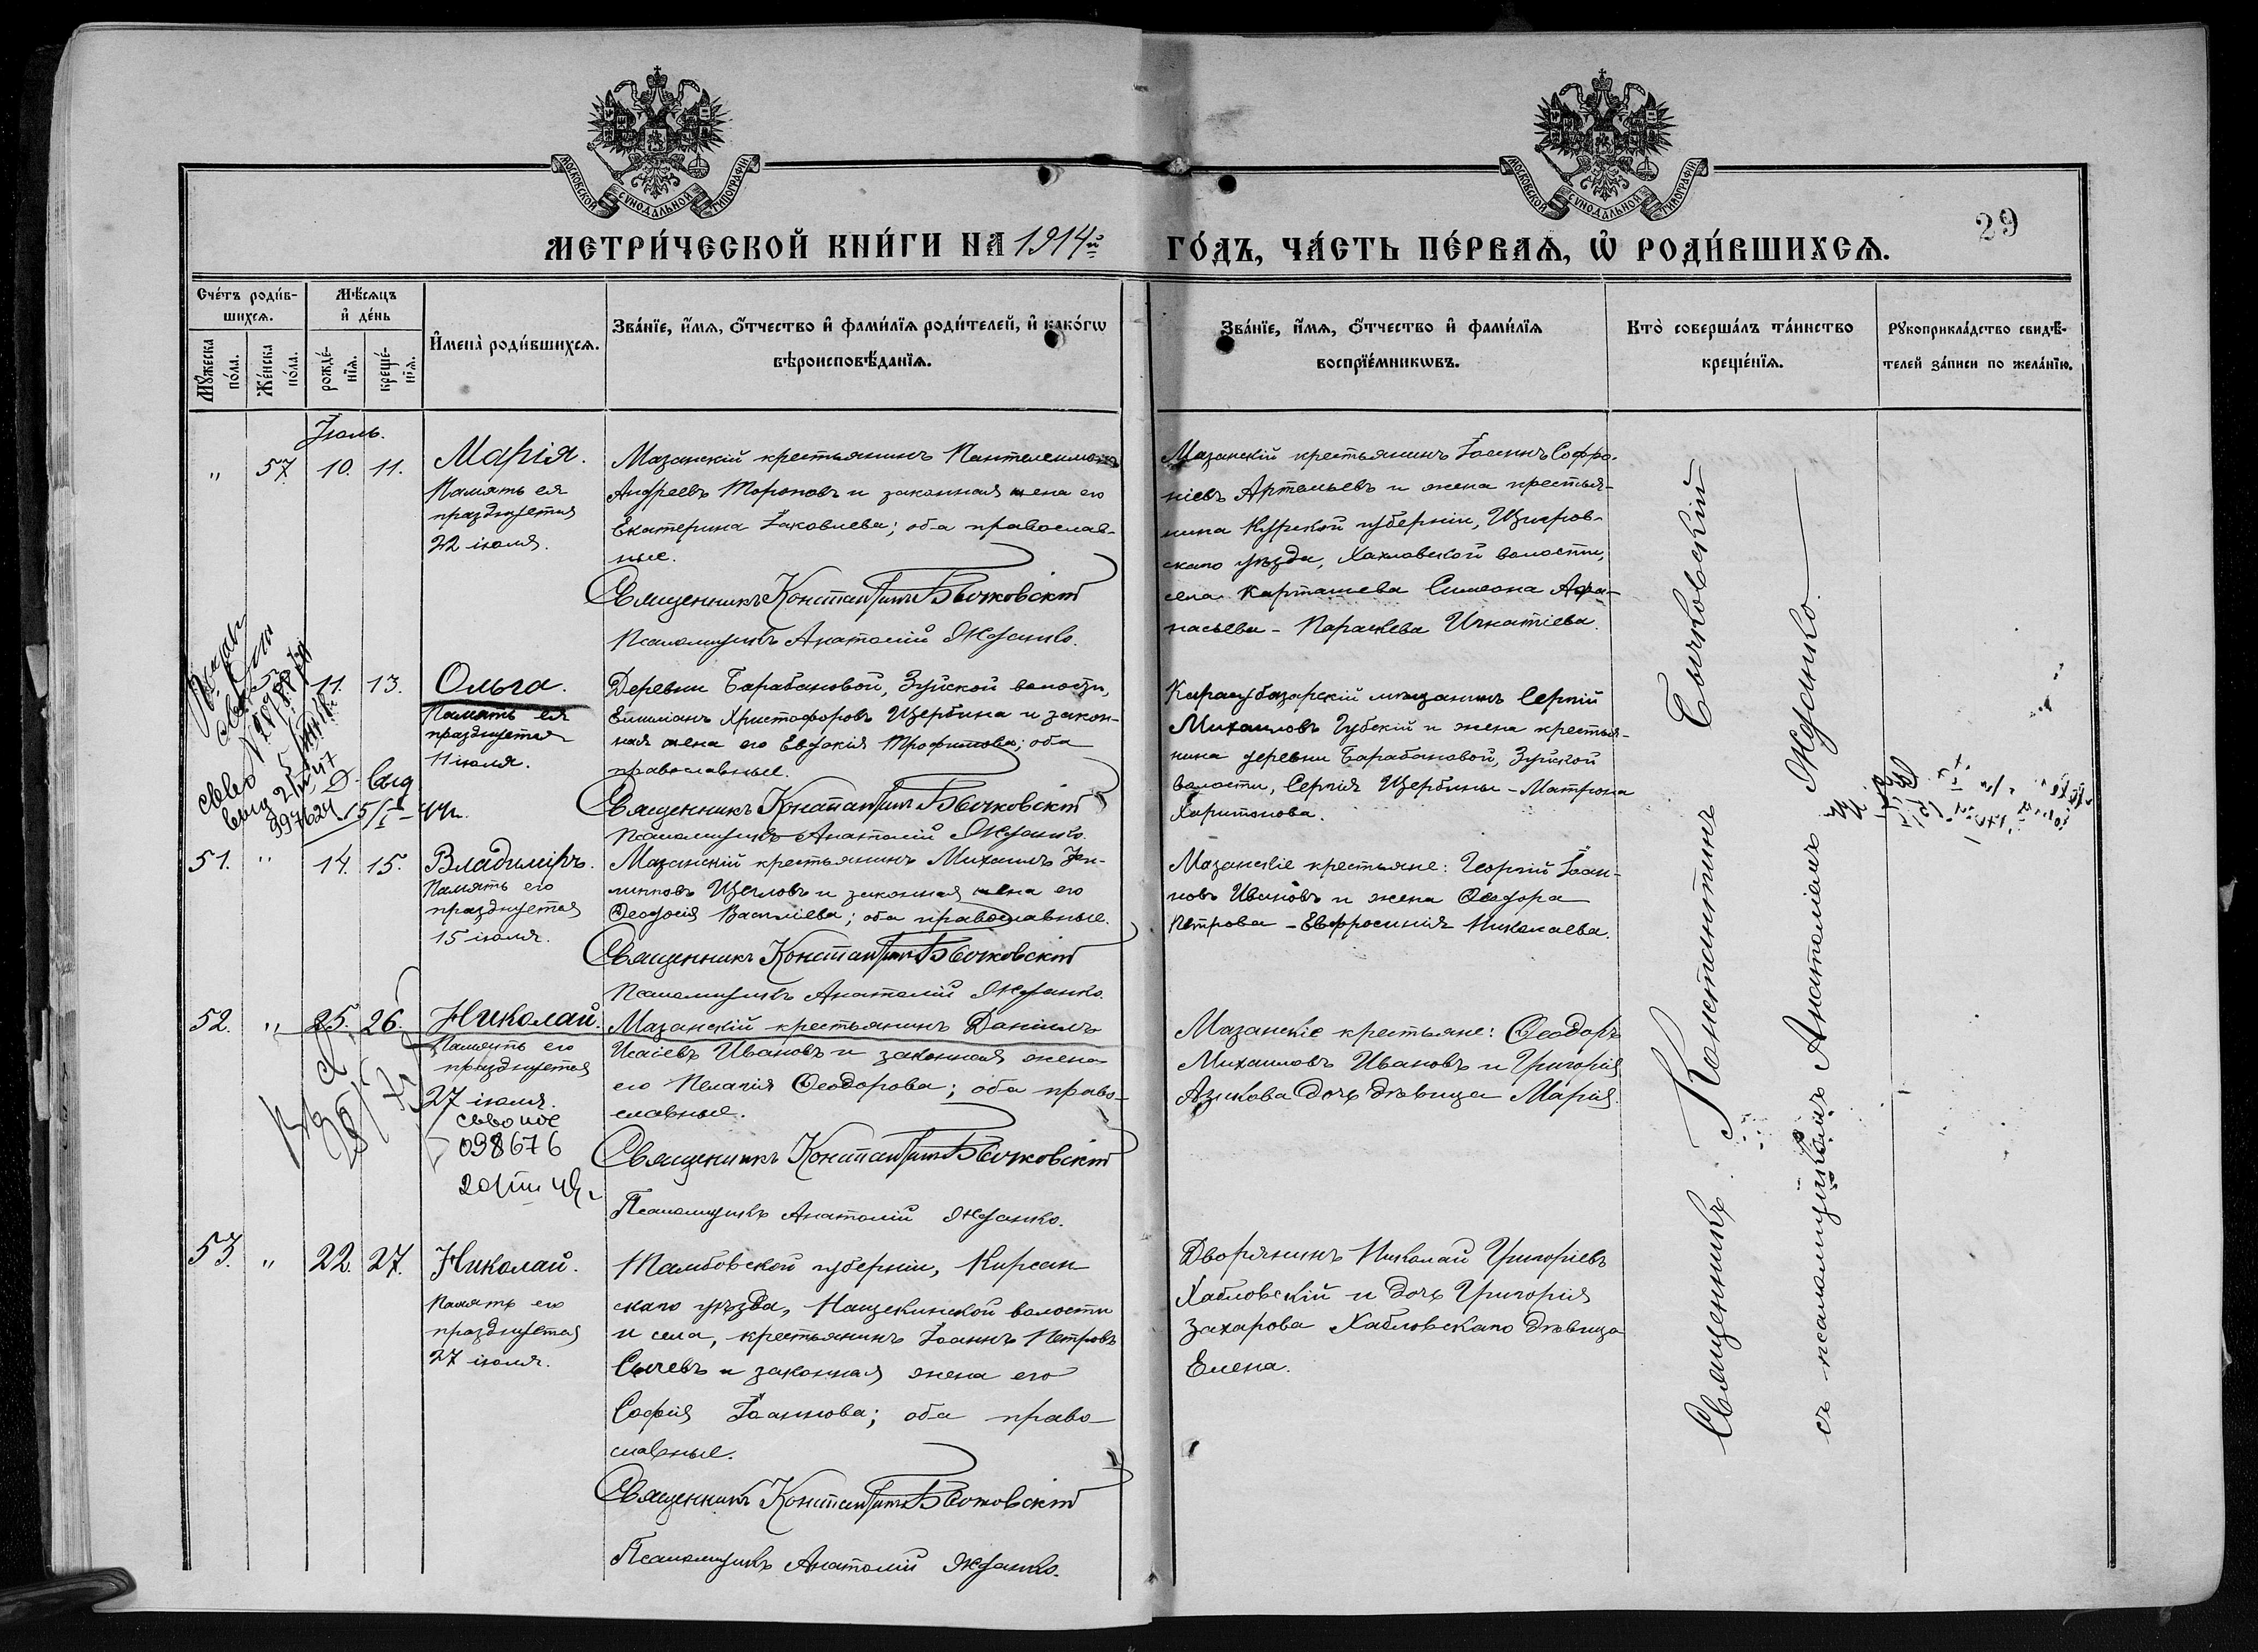 МОСКОВСКОЙ СѴНОДАЛЬНОЙ ТИПОГРАФІИ
МОСКОВСКОЙ СѴНОДАЛЬНОЙ ТИПОГРАФІИ
29
МЕТРИ́ЧЕСКОЙ КНИ́ГИ НА 1914й ГО́ДЪ, ЧА́СТЬ ПЕ́РВАѦ, Ѡ҆ РОДИ́ВШИХСѦ.
Сче́тъ роди́в-
шихсѧ.
Мꙋ́жеска
по́ла.
Же́нска
по́ла.
Мѣ́сѧцъ
и҆ де́нь
рожде́-
нїѧ.
креще́-
нїѧ.
И҆мена̀ роди́вшихсѧ.
Зва́нїе, и҆́мѧ, ѻ҆́тчество и҆ фами́лїѧ роди́телей, и҆ како́гѡ
вѣроисповѣ́данїѧ.
Зва́нїе, и҆́мѧ, ѻ҆́тчество и҆ фами́лїѧ
воспрїе́мникѡвъ.
Кто̀ соверша́лъ та́инство
креще́нїѧ.
Рꙋкоприкла́дство свидѣ́-
телей за́писи по жела́нїю.
Іюль.
" 57 10. 11.
Марія.
Память ея
празднуется
22 іюля.
Мазанскій крестьянинъ Пантелеимонъ
Андреевъ Тороповъ и законная жена его
Екатерина Іаковлева; оба православ-
ные.
Священникъ Константинъ Бычковскій
Псаломщикъ Анатолій Жданко.
Мазанскій крестьянинъ Іоаннъ Софро-
ніевъ Артемьевъ и жена крестья-
нина Курской губерніи, Щигров-
скаго уѣзда, Хохловской волости,
села Карташева Симеона Афа-
насьева - Параскева Игнатіева.
11. 13.
Ольга.
Память ея
празднуется
11 іюля.
Деревни Барабановой, Зуйской волости,
Христофоровъ Щербина и закон-
ная жена его Евдокія Трофимова; оба
православные.
Священникъ Константинъ Бычковскій
Псаломщикъ Анатолій Жданко.
Карасубазарскій мѣщанинъ Сергій
Михаиловъ Губскій и жена крестья-
нина деревни Барабановой, Зуйской
волости, Сергія Щербины - Матрона
Харитонова.
51. " 14. 15.
Владиміръ.
Память его
празднуется
15 іюля.
Мазанскій крестьянинъ Михаилъ
Щегловъ и законная жена его
Ѳеодосія Василіева; оба православные.
Священникъ Константинъ Бычковскій
Псаломщикъ Анатолій Жданко.
Мазанскіе крестьяне: Георгій Іоан-
новъ Ивановъ и жена Ѳеодора
Петрова - Евфросинія Николаева.
52. " 25. 26.
Николай.
Память его
празднуется
27 іюля.
098676
Мазанскій крестьянинъ Даніилъ
Исаіевъ Ивановъ и законная жена
его Пелагія Ѳеодорова; оба право-
славные.
Священникъ Константинъ Бычковскій
Псаломщикъ Анатолій Жданко.
Мазанскіе крестьяне: Ѳеодоръ
Михаиловъ Ивановъ и Григорія
Азикова дочь дѣвица Марія.
53. " 22. 27.
Николай.
Память его
празднуется
27 іюля.
Тамбовской губерніи, Кирсан-
скаго уѣзда, Нащекинской волости
и села, крестьянинъ Іоаннъ Петровъ
Сычевъ и законная жена его
Софія Іоаннова; оба право-
славные.
Священникъ Константинъ Бычковскій
Псаломщикъ Анатолій Жданко.
Дворянинъ Николай Григоріевъ
Хабловскій и дочь Григорія
Захарова Хабловскаго дѣвица
Елена.
Священникъ Константинъ Бычковскій
съ псаломщикомъ Анатоліемъ Жданко.